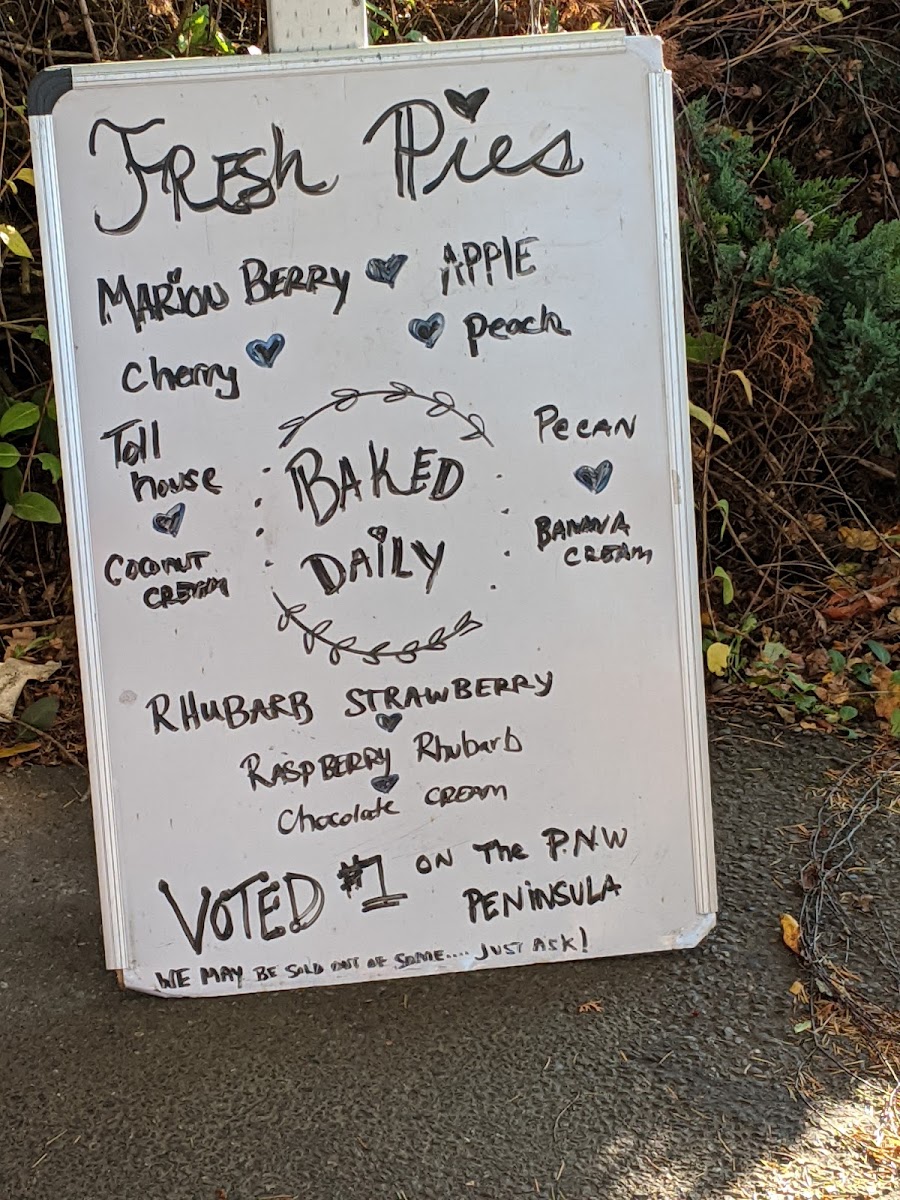 FRESh Pies
MARiON BERRY APPLE
cherry peach
Toll
house
PeCAN
COCONUT
CREAM
BANANA
CREAM
BAKED
DAiLY
RHUBARB STRAWBERRY
RASPBERRY Rhubarb
Chocolate CREAM
VOTED #1 ON The P.N.W
PENiNSULA
WE MAY BE SOLD OUT OF SOME.... JUST ASK!